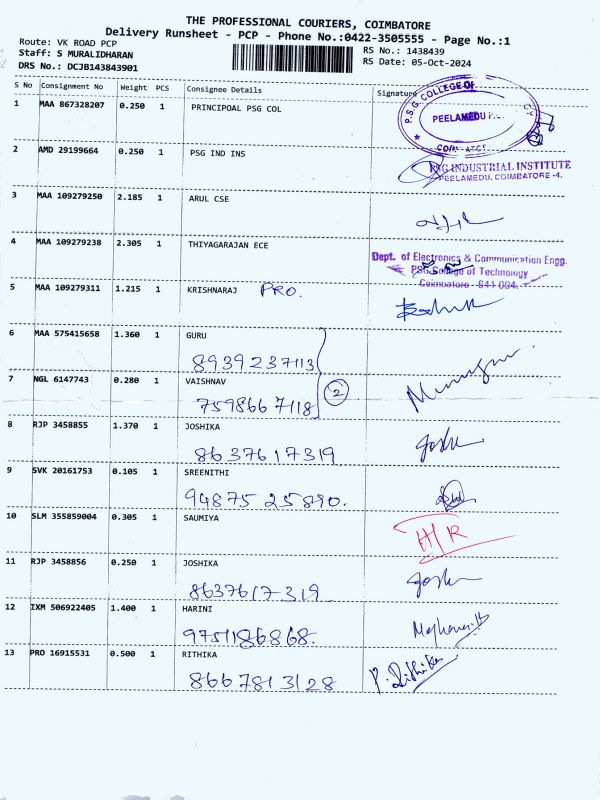 THE PROFESSIONAL COURIERS, COIMBATORE
Delivery Runsheet - PCP - Phone No.:0422-3505555 - Page No.:1
Route: VK ROAD PCP
RS No.: 1438439
Staff: S MURALIDHARAN
RS Date: 05-Oct-2024
DRS No.: DCJB143843901
S No Consignment No Weight PCS Consignee Details Signature
1 MAA 867328207 0.250 1 PRINCIPOAL PSG COL
P.S.G. COLLEGE OF
PEELAMEDU
2 AMD 29199664 0.250 1 PSG IND INS
PSG INDUSTRIAL INSTITUTE
PEELAMEDU, COIMBATORE -4.
3 MAA 109279250 2.185 1 ARUL CSE
4 MAA 109279238 2.305 1 THIYAGARAJAN ECE
Dept. of Electronics & Communication Engg.
PSG College of Technology
Coimbatore - 641 004.
5 MAA 109279311 1.215 1 KRISHNARAJ PRO.
6 MAA 575415658 1.360 1 GURU
8939237113
7 NGL 6147743 0.280 1 VAISHNAV
2
7598667118
8 RJP 3458855 1.370 1 JOSHIKA
8637617319
9 SVK 20161753 0.105 1 SREENITHI
94875 25890.
10 SLM 355859004 0.305 1 SAUMIYA
H/R
11 RJP 3458856 0.250 1 JOSHIKA
8637617319
12 IXM 506922405 1.400 1 HARINI
9751186868.
13 PRO 16915531 0.500 1 RITHIKA
P. Rithika
8667813128